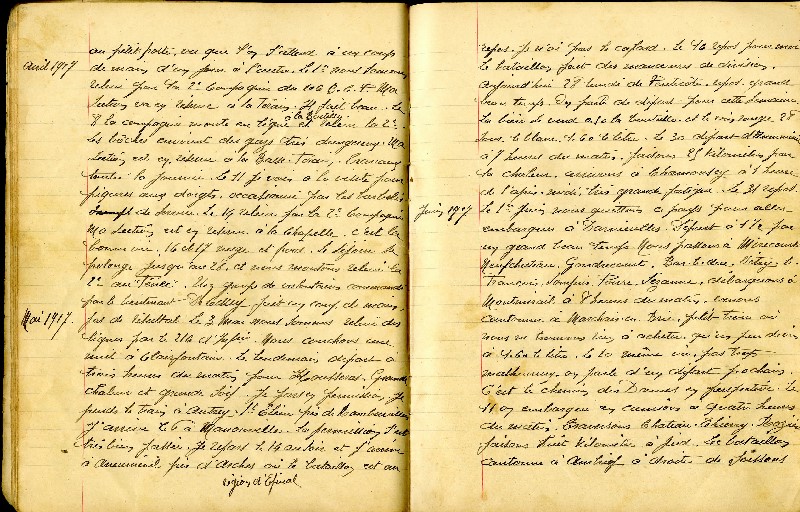 au petit poste, vu que l'on s'attend à un coup
Avril 1917 de main d'un jour à l'autre. Le 1er nous sommes
relevé par la 2e Compagnie du
section va en réserve à la Il fait beau. Le
8 la compagnie monte en ligne et relève la 2e
à la
Les boches envoient des gaz très dangereux. Ma
section est en réserve à la Basse travaux
toute la journée. Le 11 je vais à la visite pour
piqures aux doigts, occasionné par les barbelés
de Le 14 relevé par la 2e Compagnie
Ma section est en réserve à la Chapelle c'est la
bonne vie, 16 et 17 neige et froid. Le séjour se
prolonge jusqu'au 26, et nous montons relever la
2e au Un groupe de volontaires commandé
par le lieutenant fait un coup de main,
pas de résultat. Le 3 Mai nous sommes relevé des
Mai 1917. lignes par le 216 et Nous couchons une
nuit à Clairfontaine. Le lendemain départ à
trois heures du matin pour Housseras. Grande
chaleur et grande soif. Je pars en permission je
prends le train à Autrey - Ste Hélène près de Rambervillers
J'arrive le 6 à La permission s'est
très bien passée. Je repars le 14 au soir et j'arrive
à près d'Arches où le bataillon est au
région d'Epinal
repos. Je n'ai pas le cafard. Le 16 repos pour nous
Le bataillon fait des manœuvres de division.
Aujourd'hui 28 lundi de Pentecôte, repos, grand
beau temps. On parle de départ pour cette semaine.
La bière se vend 0,50 la bouteille, et le vin rouge 28
sous, le blanc 1.60 le litre. Le 30 départ
à 7 heures du matin, faisons 25 kilomètres par
la chaleur, arrivons à Chaumousey à 1 heure
de l'après-midi très grande fatigue. Le 31 repos.
Juin 1917 Le 1er Juin nous quittons ce pays pour aller
embarquer à Darnieulles. Départ à par
un grand beau temps. Nous passons à Mirecourt
Neufchateau, Gondrecourt, Bar-le-duc, Vitry-le-
François, Sompuis, Fère, Sézanne, débarquons à
Montmirail à 8 heures du matin, venons
cantonner à Marchais en Brie, petit trou où
nous ne trouvons rien à acheter, qu'un peu de vin
à 1.60 le litre. Le 10 même vie, pas trop
malheureux, on parle d'un départ prochain.
C'est le chemin des Dames en perspective. Le
11 on embarque en camions à quatre heures
du matin. Traversons Chateau-Thierry,
faisons huit kilomètres à pied. Le bataillon
cantonne à Ambrief à droite de Soissons